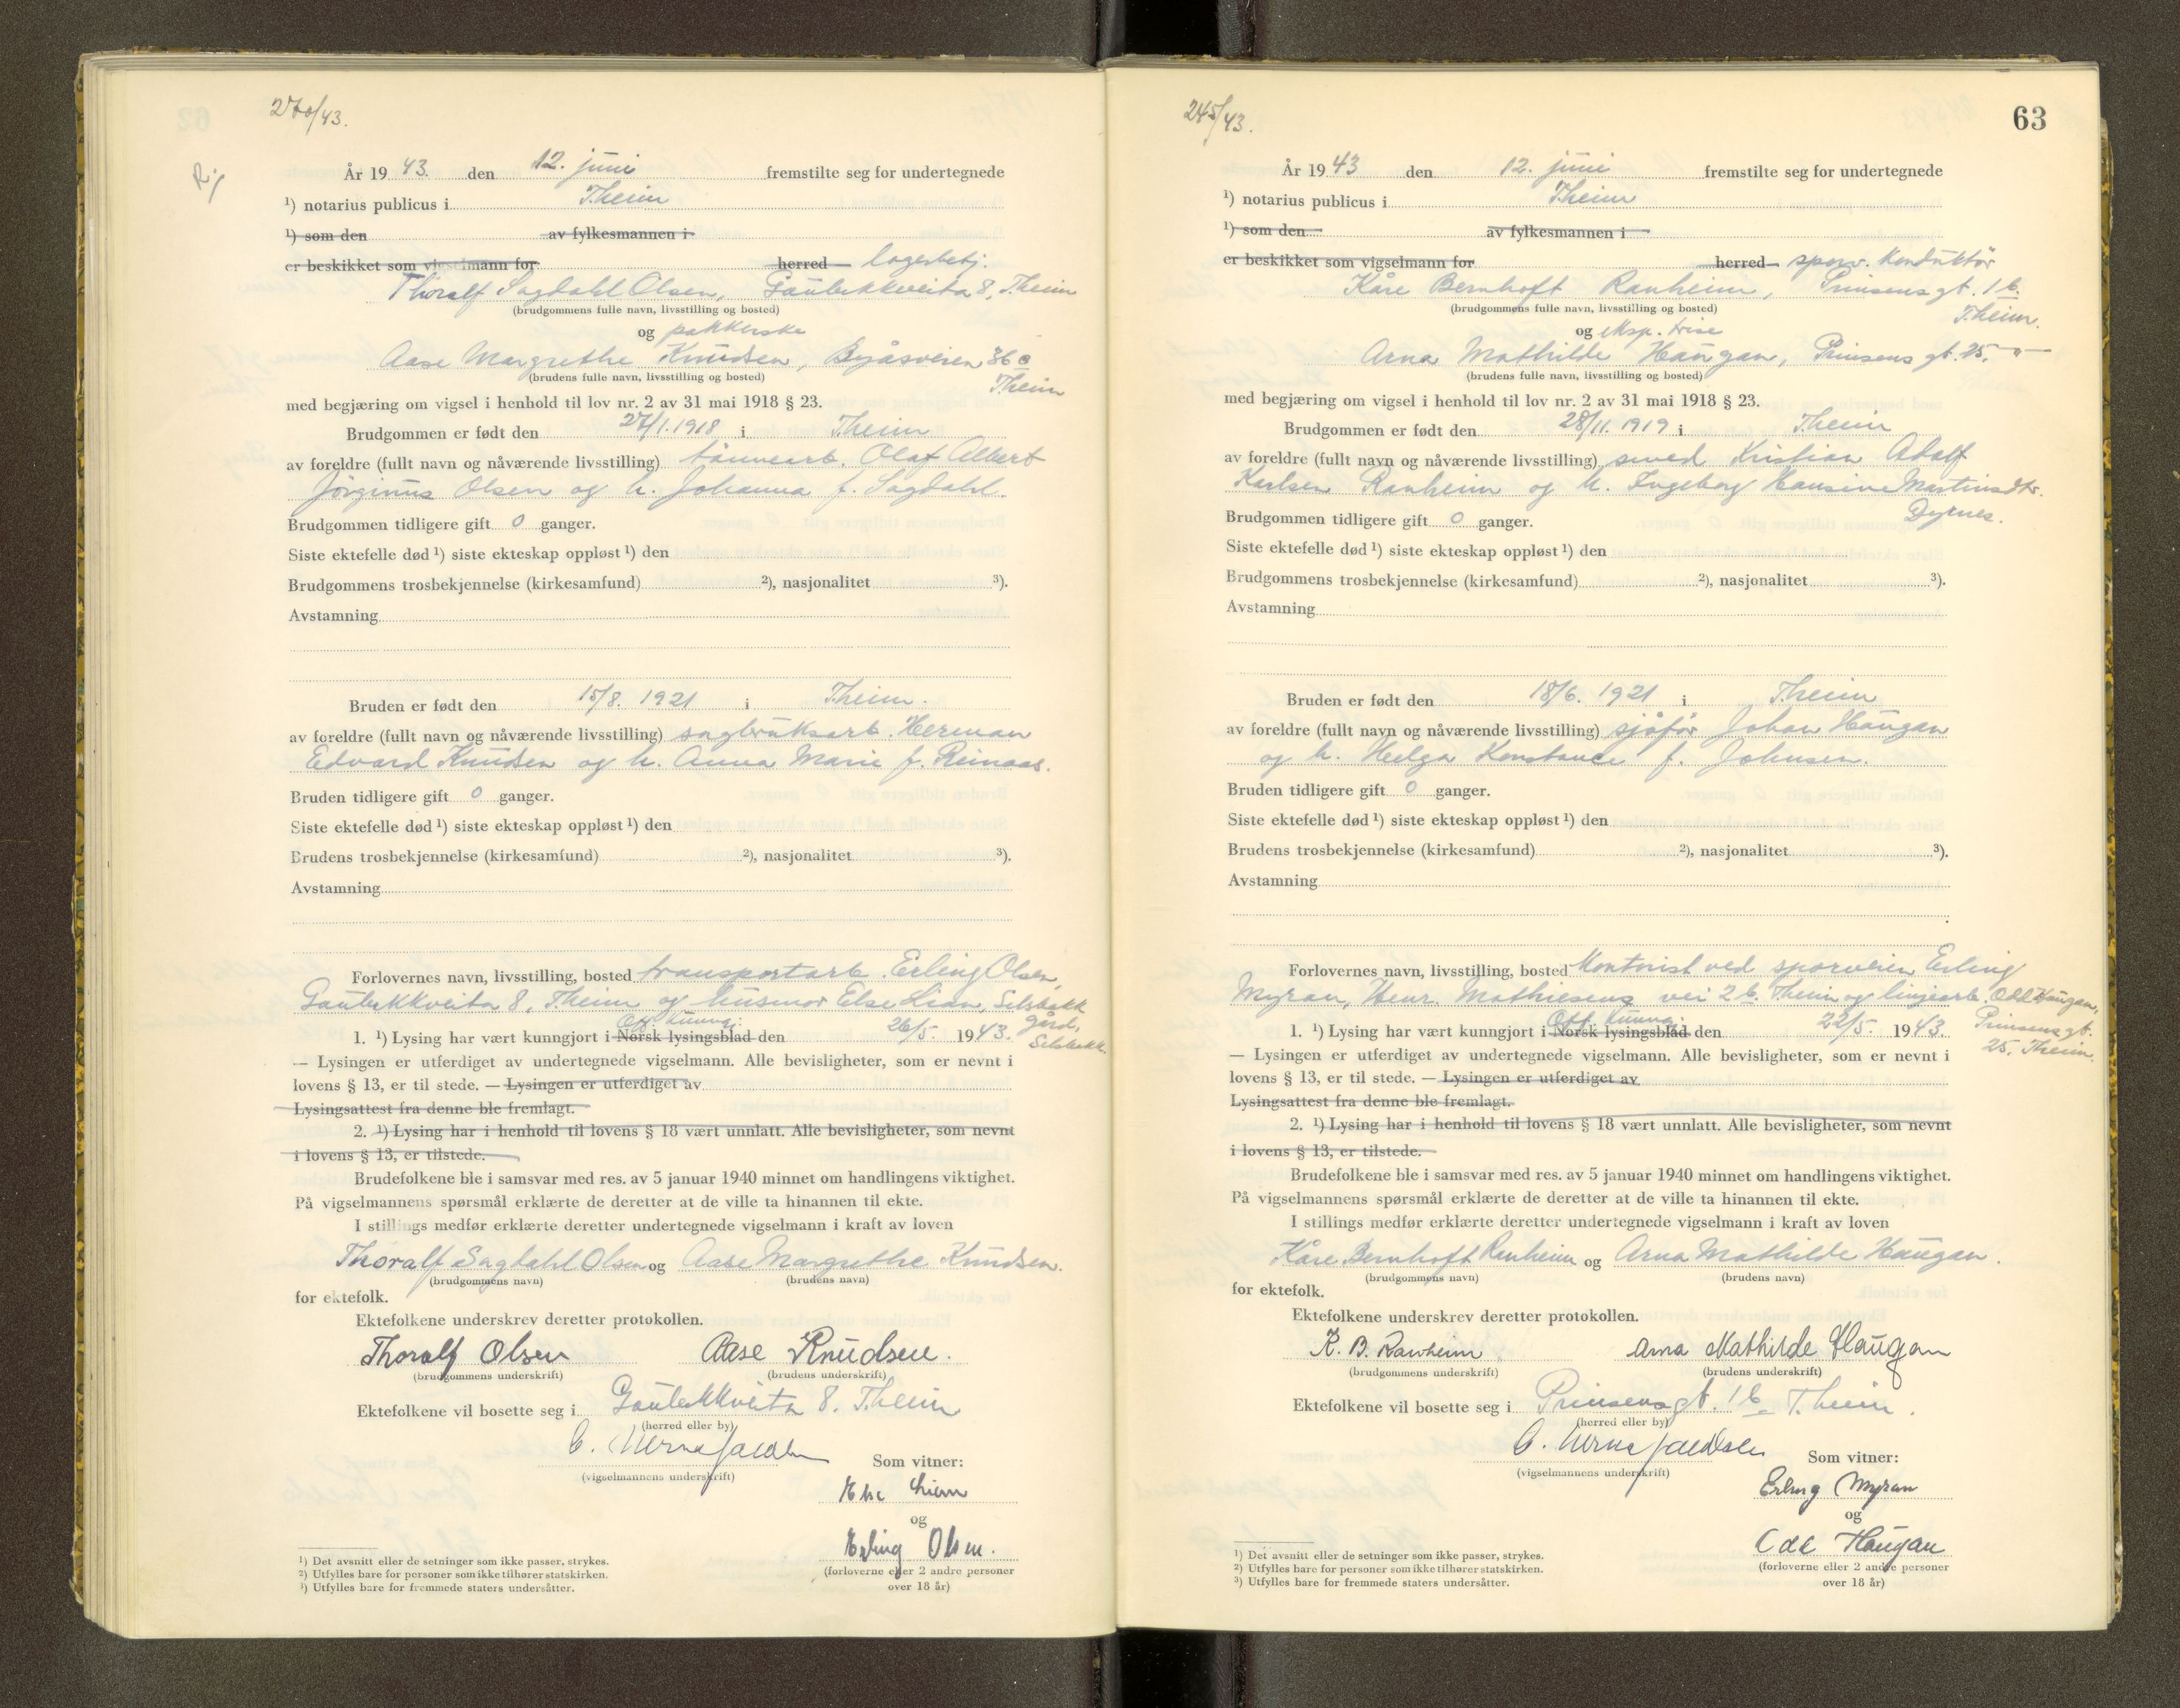 270/43.
År 19 43. den 12. juni fremstilte seg for undertegnede
¹) notarius publicus i T.heim
¹) som den av fylkesmannen i
er beskikket som vigselmann for herred lagerbetj.
Thoralf Sagdahl Olsen, Gaubekkveita 8, T.heim
(brudgommens fulle navn, livsstilling og bosted)
og pakkerske
Aase Margrethe Knudsen, Byåsveien 36 c
T.heim
(brudens fulle navn, livsstilling og bosted)
med begjæring om vigsel i henhold til lov nr. 2 av 31 mai 1918 § 23.
Brudgommen er født den 27/1. 1918 i T.heim
av foreldre (fullt navn og nåværende livsstilling) tønnearb. Olaf Albert
Jørginus Olsen og h. Johanna f. Sagdahl.
Brudgommen tidligere gift 0 ganger.
Siste ektefelle død ¹) siste ekteskap oppløst ¹) den
Brudgommens trosbekjennelse (kirkesamfund) ²), nasjonalitet ³).
Avstamning
Bruden er født den 15/8. 1921 i T.heim.
av foreldre (fullt navn og nåværende livsstilling) sagbruksarb. Herman
Edvard Knudsen og h. Anna Marie f. Reinaas.
Bruden tidligere gift 0 ganger.
Siste ektefelle død ¹) siste ekteskap oppløst ¹) den
Brudens trosbekjennelse (kirkesamfund) ²), nasjonalitet ³).
Avstamning
Forlovernes navn, livsstilling, bosted transportarb. Erling Olsen,
Gaubekkveita 8, T.heim og husmor Else Lian, Selsbakk
gård,
Selsbakk.
Off. kunngj.
1. ¹) Lysing har vært kunngjort i Norsk lysingsblad den 26/5. 1943.
— Lysingen er utferdiget av undertegnede vigselmann. Alle bevisligheter, som er nevnt i
lovens § 13, er til stede. — Lysingen er utferdiget av
Lysingsattest fra denne ble fremlagt.
2. ¹) Lysing har i henhold til lovens § 18 vært unnlatt. Alle bevisligheter, som nevnt
i lovens § 13, er tilstede.
Brudefolkene ble i samsvar med res. av 5 januar 1940 minnet om handlingens viktighet.
På vigselmannens spørsmål erklærte de deretter at de ville ta hinannen til ekte.
I stillings medfør erklærte deretter undertegnede vigselmann i kraft av loven
Thoralf Sagdahl Olsen og Aase Margrethe Knudsen.
(brudgommens navn) (brudens navn)
for ektefolk.
Ektefolkene underskrev deretter protokollen.
Thoralf Olsen Aase Knudsen.
(brudgommens underskrift) (brudens underskrift)
Ektefolkene vil bosette seg i Gaubekkveita 8. T.heim
(herred eller by)
(vigselmannens underskrift)
Som vitner:
Else Lian
og
Erling Olsen.
(forloverne eller 2 andre personer
over 18 år)
¹) Det avsnitt eller de setninger som ikke passer, strykes.
²) Utfylles bare for personer som ikke tilhører statskirken.
³) Utfylles bare for fremmede staters undersåtter.
63
245/43.
År 19 43 den 12. juni fremstilte seg for undertegnede
¹) notarius publicus i T.heim
¹) som den av fylkesmannen i
er beskikket som vigselmann for herred sporv. konduktør
Kåre Bernhoft Ranheim, Prinsens gt. 1 b.
T.heim.
(brudgommens fulle navn, livsstilling og bosted)
og eksp. trise
Arna Mathilde Haugan, Prinsens gt. 25. — " —
(brudens fulle navn, livsstilling og bosted)
med begjæring om vigsel i henhold til lov nr. 2 av 31 mai 1918 § 23.
Brudgommen er født den 28/11. 1919 i T.heim
av foreldre (fullt navn og nåværende livsstilling) smed Kristian Adolf
Karlsen Ranheim og h. Ingeborg Hansine Martinsdtr.
Dyrnes.
Brudgommen tidligere gift 0 ganger.
Siste ektefelle død ¹) siste ekteskap oppløst ¹) den
Brudgommens trosbekjennelse (kirkesamfund) ²), nasjonalitet ³).
Avstamning
Bruden er født den 18/6. 1921 i T.heim
av foreldre (fullt navn og nåværende livsstilling) sjåfør Johan Haugan
og h. Helga Konstance f. Johnsen.
Bruden tidligere gift 0 ganger.
Siste ektefelle død ¹) siste ekteskap oppløst ¹) den
Brudens trosbekjennelse (kirkesamfund) ²), nasjonalitet ³).
Avstamning
Forlovernes navn, livsstilling, bosted kontorist ved sporveien Erling
Myran, Henr. Mathiesens vei 2 b. T.heim og linjearb. Odd Haugan,
Prinsens gt.
25, T.heim.
Off. kunngj.
1. ¹) Lysing har vært kunngjort i Norsk lysingsblad den 22/5. 1943.
— Lysingen er utferdiget av undertegnede vigselmann. Alle bevisligheter, som er nevnt i
lovens § 13, er til stede. — Lysingen er utferdiget av
Lysingsattest fra denne ble fremlagt.
2. ¹) Lysing har i henhold til lovens § 18 vært unnlatt. Alle bevisligheter, som nevnt
i lovens § 13, er tilstede.
Brudefolkene ble i samsvar med res. av 5 januar 1940 minnet om handlingens viktighet.
På vigselmannens spørsmål erklærte de deretter at de ville ta hinannen til ekte.
I stillings medfør erklærte deretter undertegnede vigselmann i kraft av loven
Kåre Bernhoft Ranheim og Arna Mathilde Haugan.
(brudgommens navn) (brudens navn)
for ektefolk.
Ektefolkene underskrev deretter protokollen.
K. B. Ranheim Arna Mathilde Haugan
(brudgommens underskrift) (brudens underskrift)
Ektefolkene vil bosette seg i Prinsens gt. 1 b T.heim.
(herred eller by)
(vigselmannens underskrift)
Som vitner:
Erling Myran
og
Odd Haugan
(forloverne eller 2 andre personer
over 18 år)
¹) Det avsnitt eller de setninger som ikke passer, strykes.
²) Utfylles bare for personer som ikke tilhører statskirken.
³) Utfylles bare for fremmede staters undersåtter.